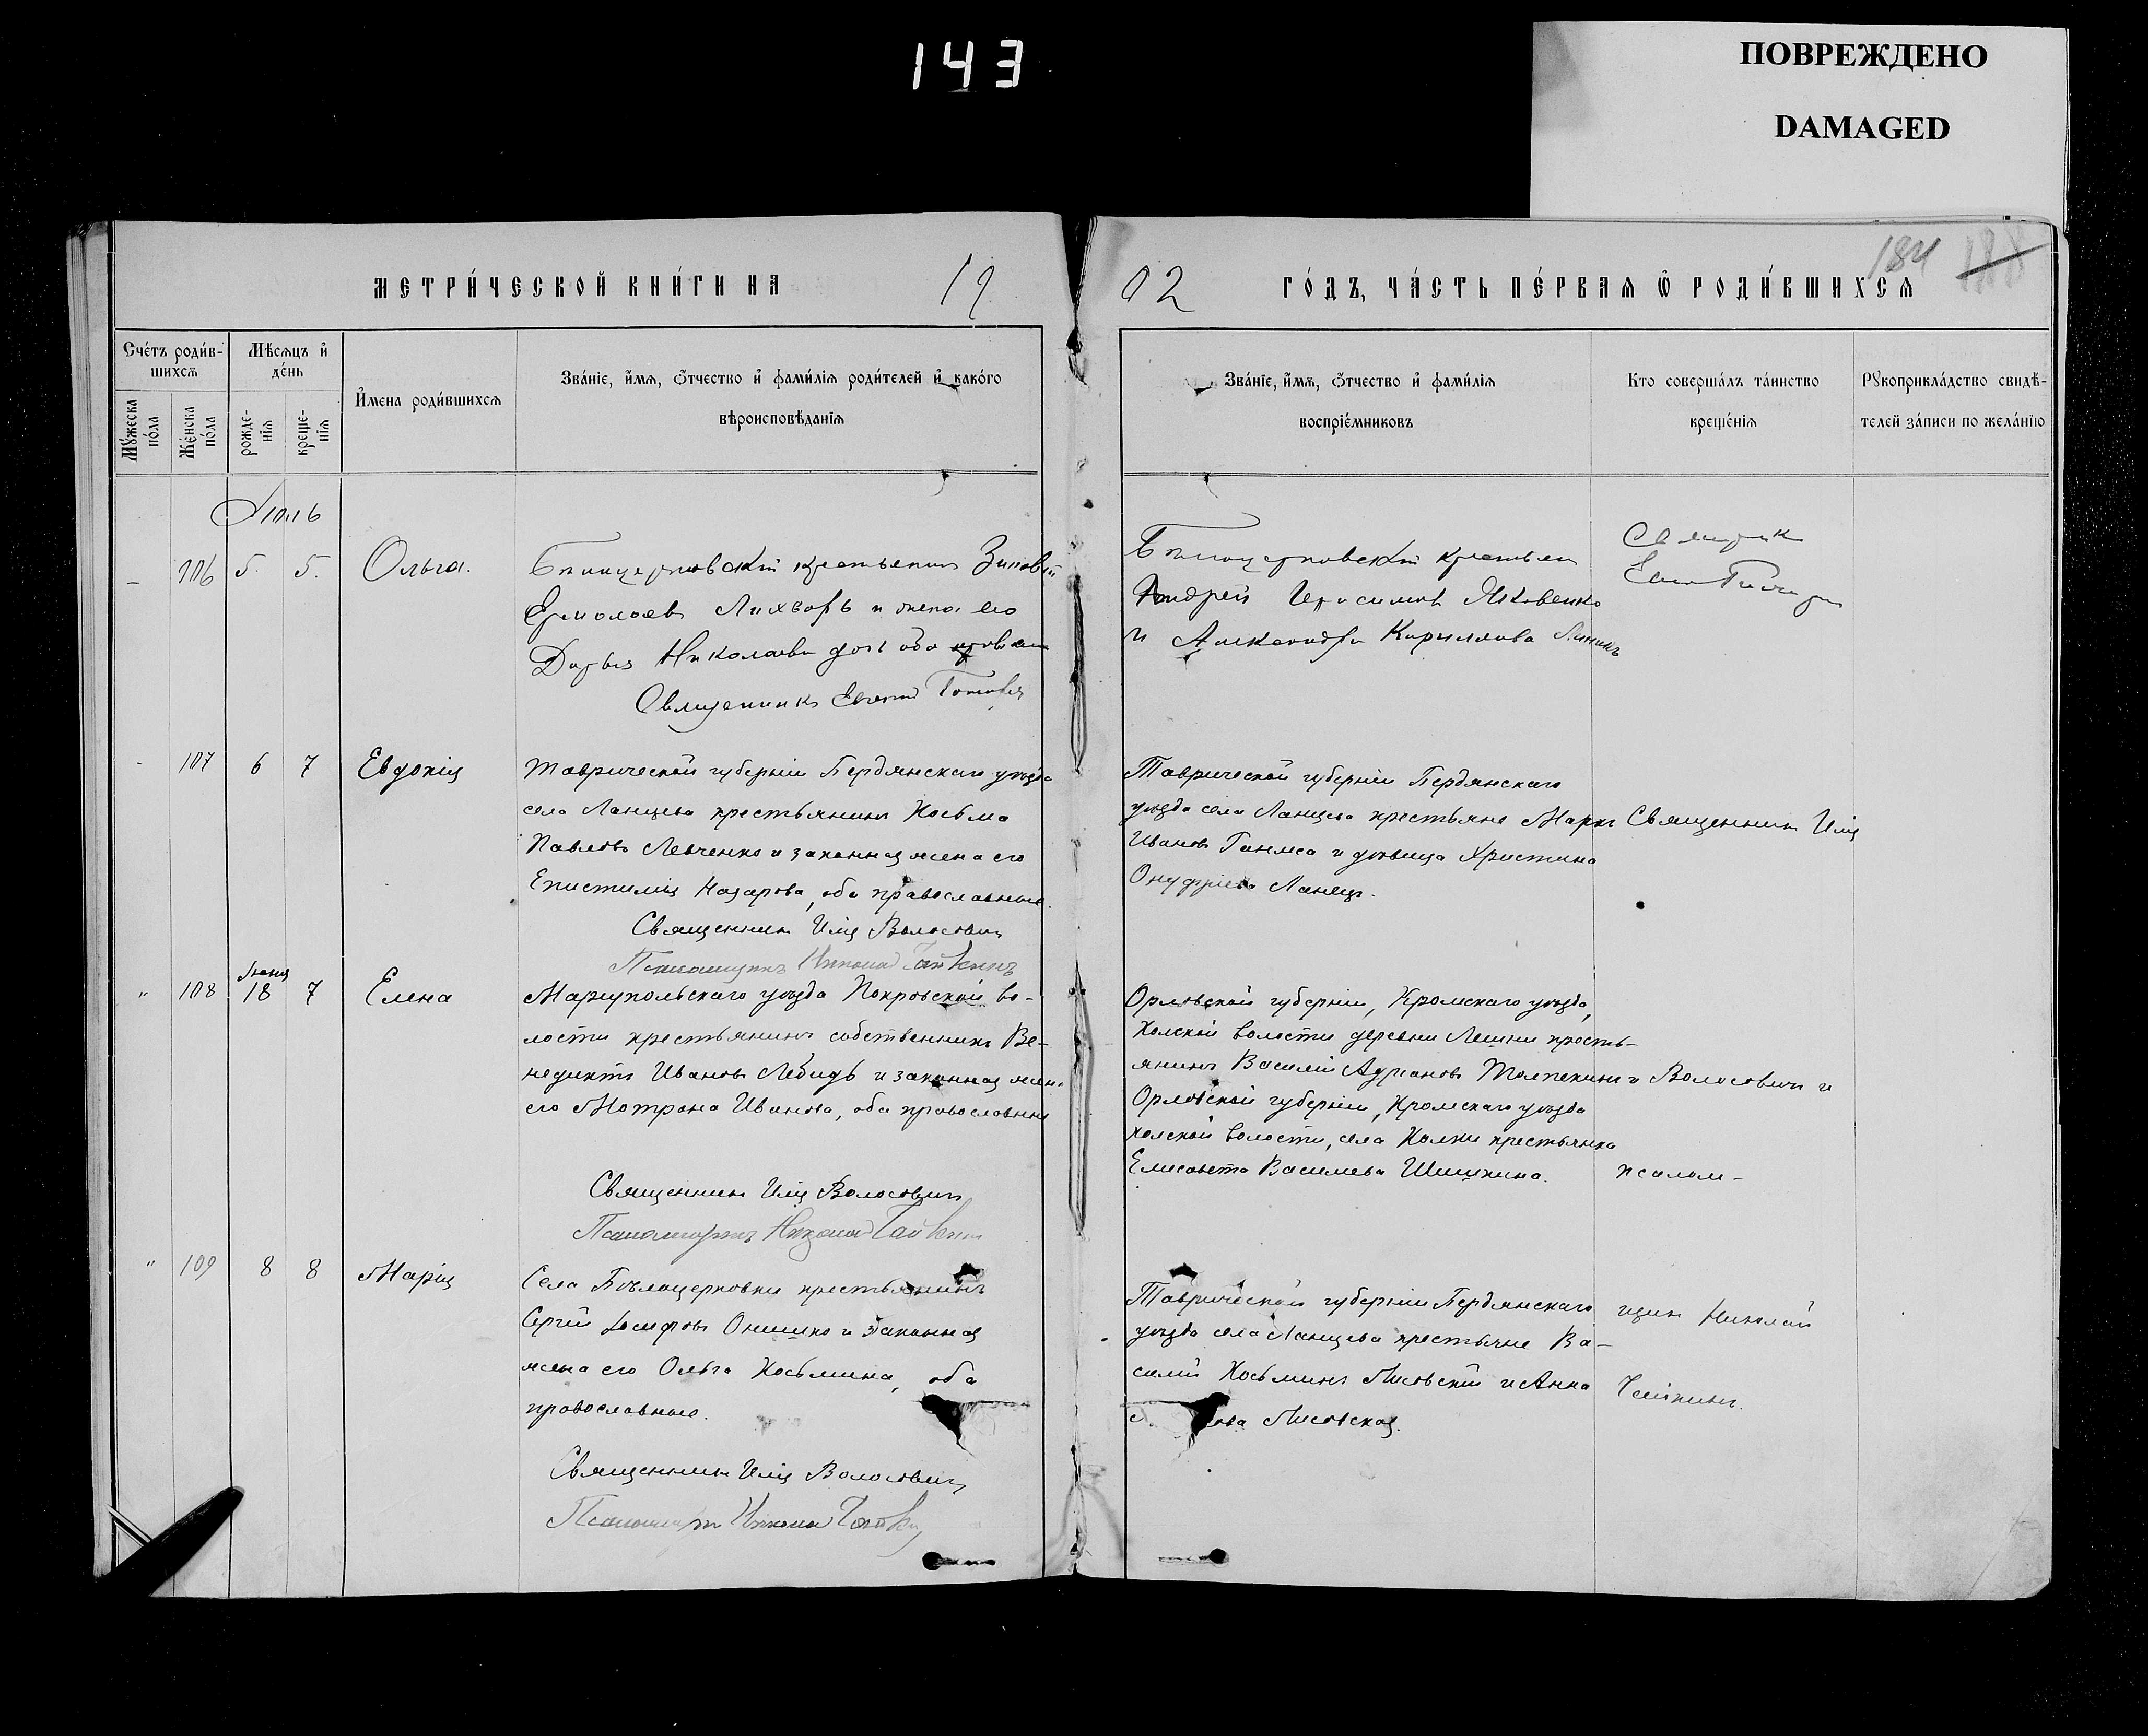 143
ПОВРЕЖДЕНО
DAMAGED
184 188
МЕТРИ́ЧЕСКОЙ КНИ́ГИ НА 19
02 ГО́ДЪ, ЧА́СТЬ ПЕ́РВАЯ Ѡ҆ РОДИ́ВШИХСѦ
Сче́тъ роди́в-
шихсѧ
Мѣ́сѧцъ и҆
де́нь
Му́жеска
по́ла
Же́нска
по́ла
рожде-
нїѧ
креще-
нїѧ
И҆́мена роди́вшихсѧ
Зва́нїе, и҆́мѧ, ѻ҆́тчество и҆ фами́лїѧ роди́телей и҆ како́го
вѣроисповѣ́данїѧ
Зва́нїе, и҆́мѧ, ѻ҆́тчество и҆ фами́лїѧ
воспрїе́мниковъ
Кто соверша́лъ та́инство
креще́нїѧ
Рꙋкоприкла́дство свидѣ́-
телей за́писи по жела́нїю
Іюль
106 5. 5. Ольга.
крестьянинъ Зиновій
Ермолаевъ Лихварь и жена его
Дарья Николаева оба
Священникъ
Андрей Яковенко
и Александра Кириллова
107 6 7 Евдокія
Таврической губерніи Бердянскаго уѣзда
села Ланцево крестьянинъ Косьма
Павловъ Левченко и законная жена его
Епистимія Назарова, оба православные.
Священникъ Илія Волосовичъ
Псаломщикъ Николай
Таврической губерніи Бердянскаго
уѣзда села Ланцево крестьяне Маркъ
Ивановъ и дѣвица Христина
Онуфріева Ланецъ.
Священникъ Илія
" 108 Іюня 18 7 Елена
Маріупольскаго уѣзда Покровской во-
лости крестьянинъ собственникъ Ве-
недиктъ Ивановъ Лебидь и законная жена
его Мотрона Иванова, оба православные
Священникъ Илія Волосовичъ
Псаломщикъ Николай
Орловской губерніи, Кромскаго уѣзда,
волости деревни кресть-
янинъ Василій Адріановъ и
Орловской губерніи, Кромскаго уѣзда
волости, села крестьянка
Елисавета Василіева Шишкина.
Волосовичъ и
псалом-
" 109 8 8 Марія
Села Бѣлоцерковки крестьянинъ
Сергій Іосифовъ Онишко и законная
жена его Ольга Косьмина, оба
православные.
Священникъ Илія Волосовичъ
Псаломщикъ Николай
Таврической губерніи Бердянскаго
уѣзда села Ланцево крестьяне Ва-
силій Косьминъ Лисовскій и Анна
Лисовская.
щикъ Николай